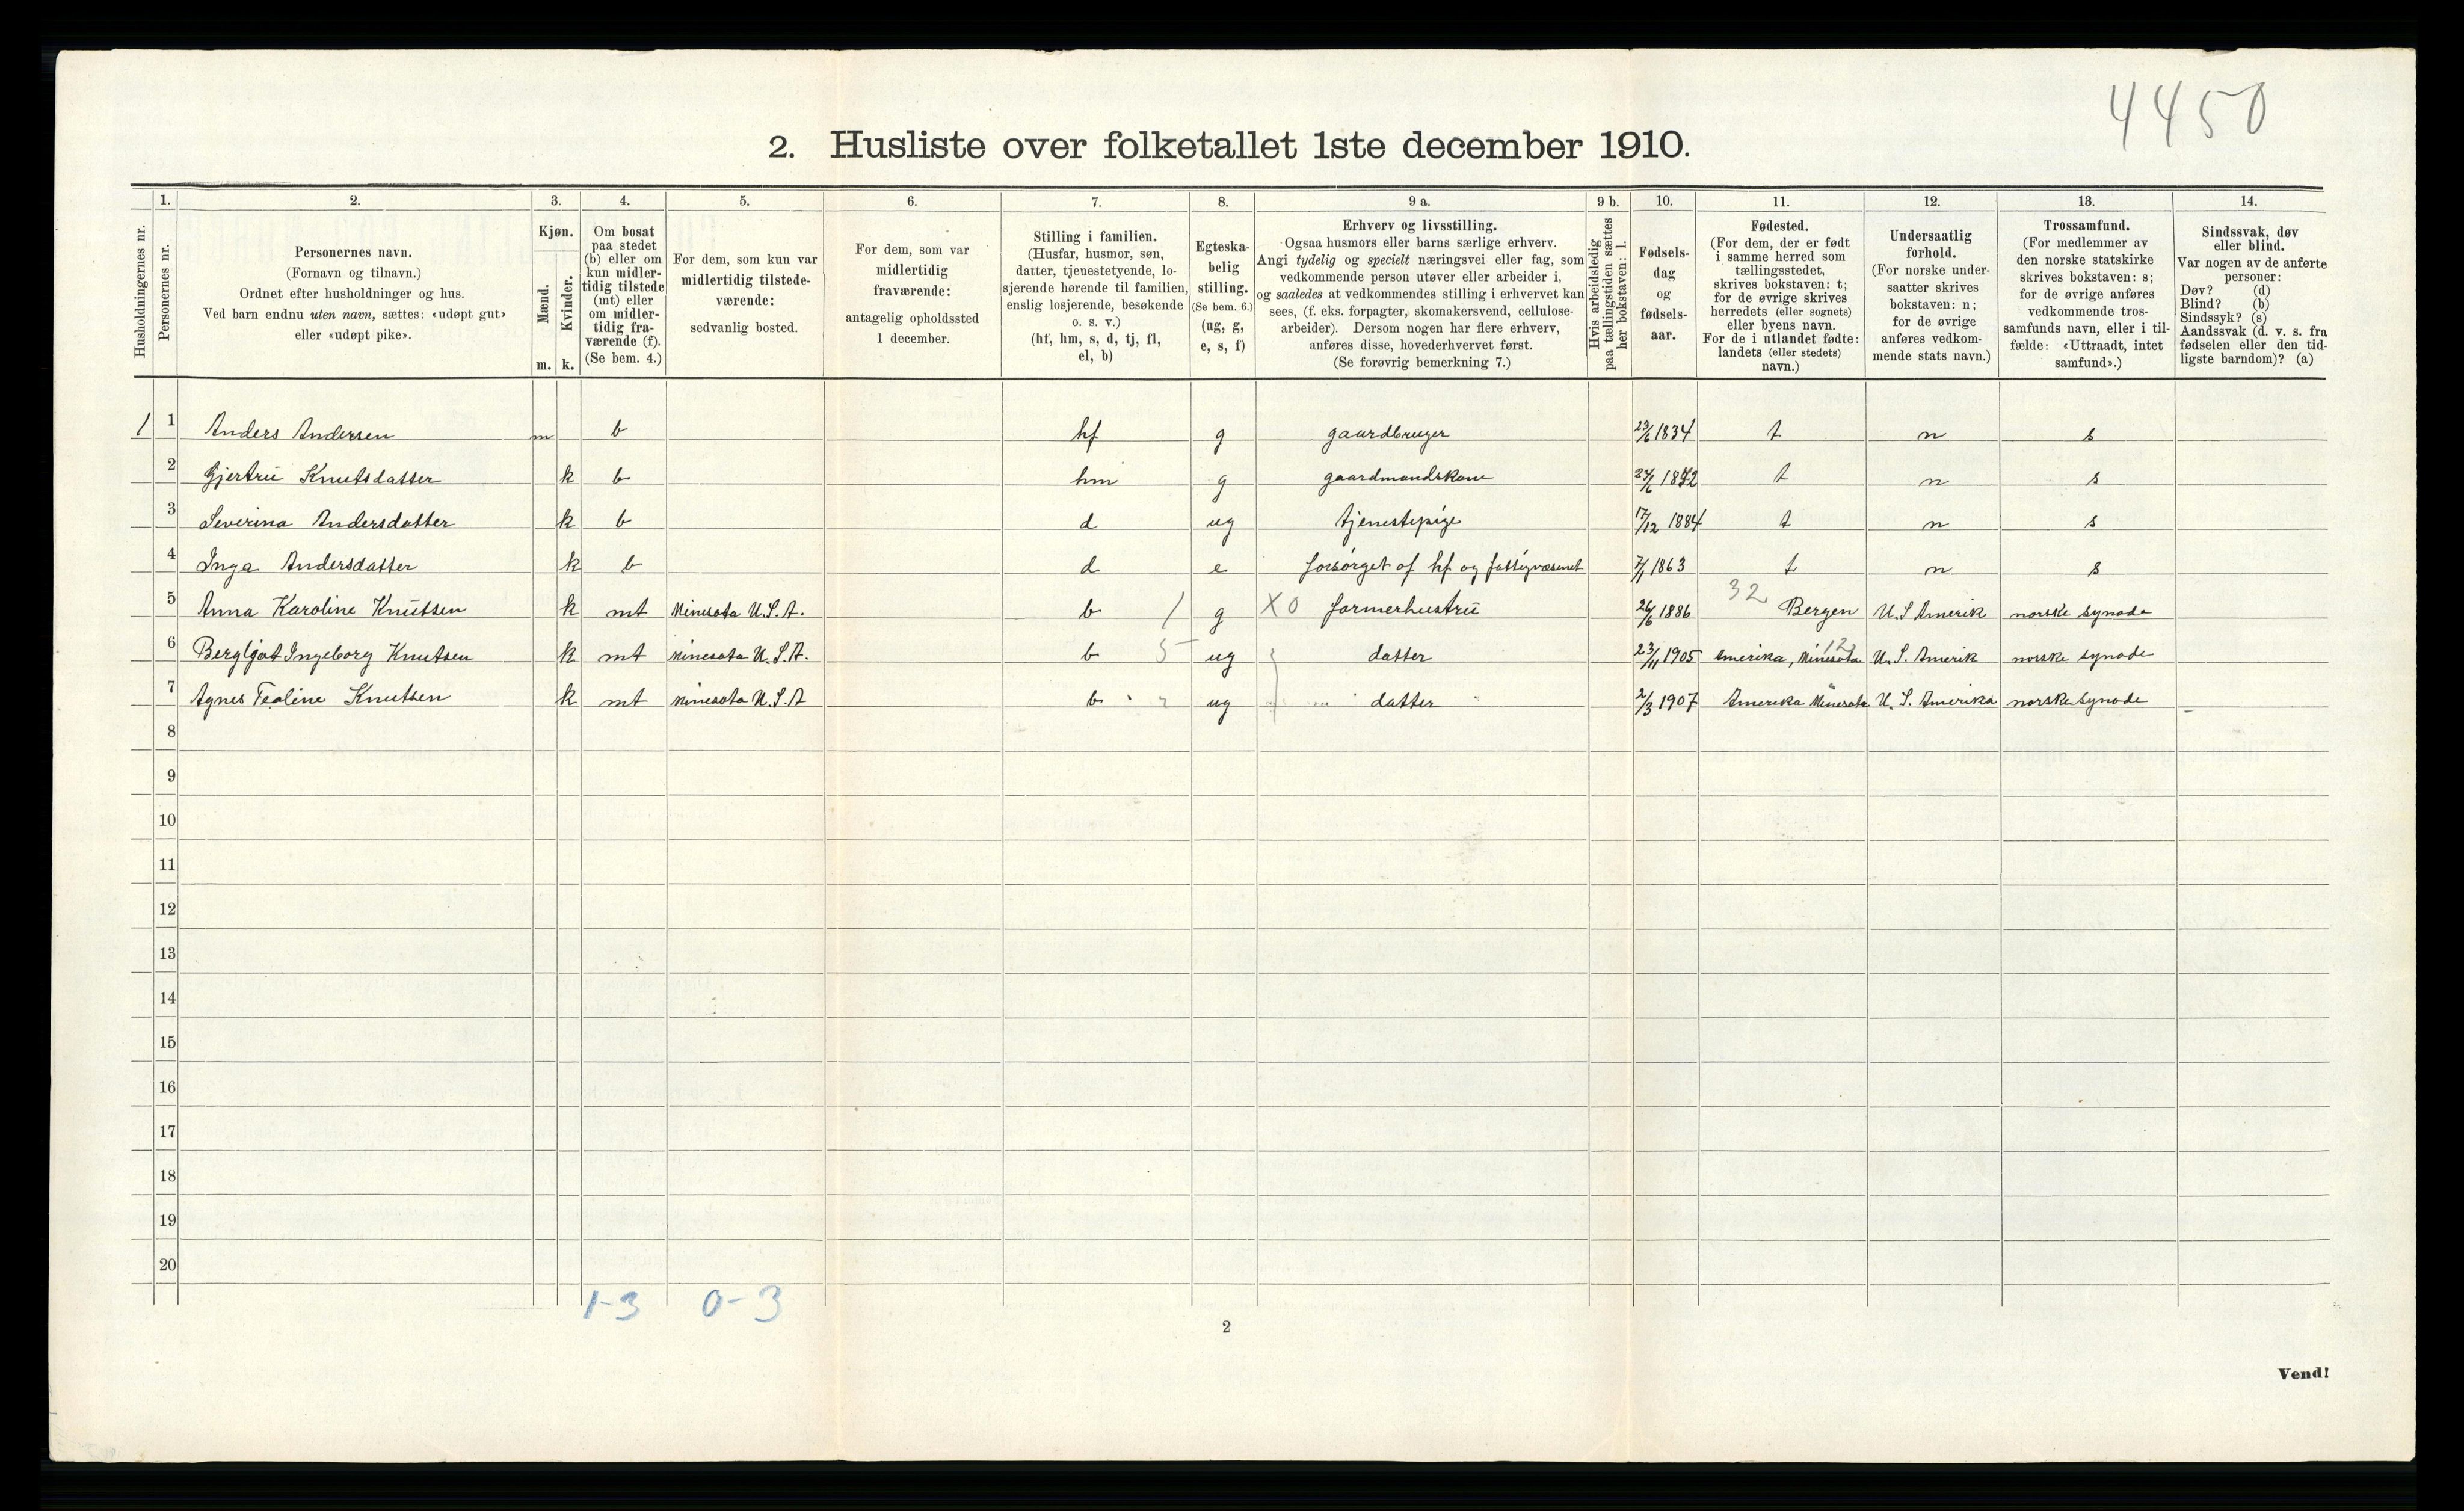 4450
2. Husliste over folketallet 1ste december 1910.
1. 2. 3. 4. 5. 6. 7. 8. 9 a. 9 b. 10. 11. 12. 13. 14.
Husholdningernes nr.
Personernes nr.
Personernes navn.
(Fornavn og tilnavn.)
Ordnet efter husholdninger og hus.
Ved barn endnu uten navn, sættes: «udøpt gut»
eller «udøpt pike».
Kjøn.
Mænd.
Kvinder.
m. k.
Om bosat
paa stedet
(b) eller om
kun midler-
tidig tilstede
(mt) eller
om midler-
tidig fra-
værende (f).
(Se bem. 4.)
For dem, som kun var
midlertidig tilstede-
værende:
sedvanlig bosted.
For dem, som var
midlertidig
fraværende:
antagelig opholdssted
1 december.
Stilling i familien.
(Husfar, husmor, søn,
datter, tjenestetyende, lo-
sjerende hørende til familien,
enslig losjerende, besøkende
o. s. v.)
(hf, hm, s, d, tj, fl,
el, b)
Egteska-
belig
stilling.
(Se bem. 6.)
(ug, g,
e, s, f)
Erhverv og livsstilling.
Ogsaa husmors eller barns særlige erhverv.
Angi tydelig og specielt næringsvei eller fag, som
vedkommende person utøver eller arbeider i,
og saaledes at vedkommendes stilling i erhvervet kan
sees, (f. eks. forpagter, skomakersvend, cellulose-
arbeider). Dersom nogen har flere erhverv,
anføres disse, hovederhvervet først.
(Se forøvrig bemerkning 7.)
Hvis arbeidsledig
paa tællingstiden sættes
her bokstaven: l.
Fødsels-
dag
og
fødsels-
aar.
Fødested.
(For dem, der er født
i samme herred som
tællingsstedet,
skrives bokstaven: t;
for de øvrige skrives
herredets (eller sognets)
eller byens navn.
For de i utlandet fødte:
landets (eller stedets)
navn.)
Undersaatlig
forhold.
(For norske under-
saatter skrives
bokstaven: n;
for de øvrige
anføres vedkom-
mende stats navn.)
Trossamfund.
(For medlemmer av
den norske statskirke
skrives bokstaven: s;
for de øvrige anføres
vedkommende tros-
samfunds navn, eller i til-
fælde: «Uttraadt, intet
samfund».)
Sindssvak, døv
eller blind.
Var nogen av de anførte
personer:
Døv? (d)
Blind? (b)
Sindssyk? (s)
Aandssvak (d. v. s. fra
fødselen eller den tid-
ligste barndom)? (a)
1 1 Anders Andersen m b hf g gaardbruger 23/6 1834 t n s
2 Gjertrü Knutsdatter k b hm g gaardmandskone 24/6 1842 t n s
3 Severina Andersdatter k b d ug tjenestepige 17/12 1884 t n s
4 Inga Andersdatter k b d e forsørget af hf og fattigvæsenet 7/1 1863 t n s
5 Anna Karoline Knütsen k mt Minesota U.S.A. b 1 g X0 farmerhustrü 26/6 1886 32 Bergen U.S Amerik norske synode
6 Bergljot Ingeborg Knutsen k mt Minesota U.S.A. b 5 ug datter 23/11 1905 Amerika, Minesota 12 U.S. Amerik norske synode
7 Agnes Tealine Knutsen k mt Minesota U.S.A b " ug datter 2/3 1907 Amerika Minesota U.S. Amerika norske synode
8
9
10
11
12
13
14
15
16
17
18
19
20
1-3 0-3
2
Vend!